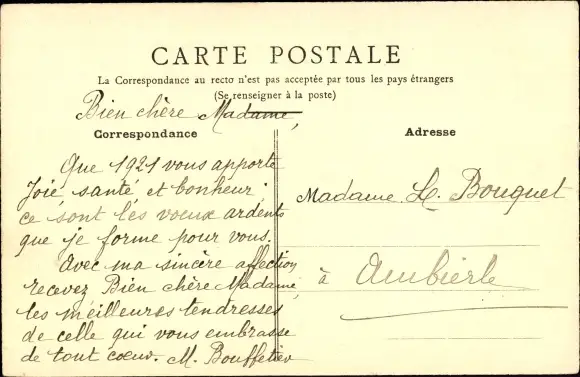 CARTE POSTALE
La Correspondance au recto n'est pas acceptée par tous les pays étrangers
(Se renseigner à la poste)
Bien chère Madame,
Correspondance
Que 1921 vous apporte
Joie santé et bonheur :
ce sont les voeux ardents
que je forme pour vous.
Avec ma sincère affection
recevez Bien chère Madame
les meilleures tendresses
de celle qui vous embrasse
de tout coeur. M. Bouffetier
Adresse
Madame L. Bouquet
à Ambierle